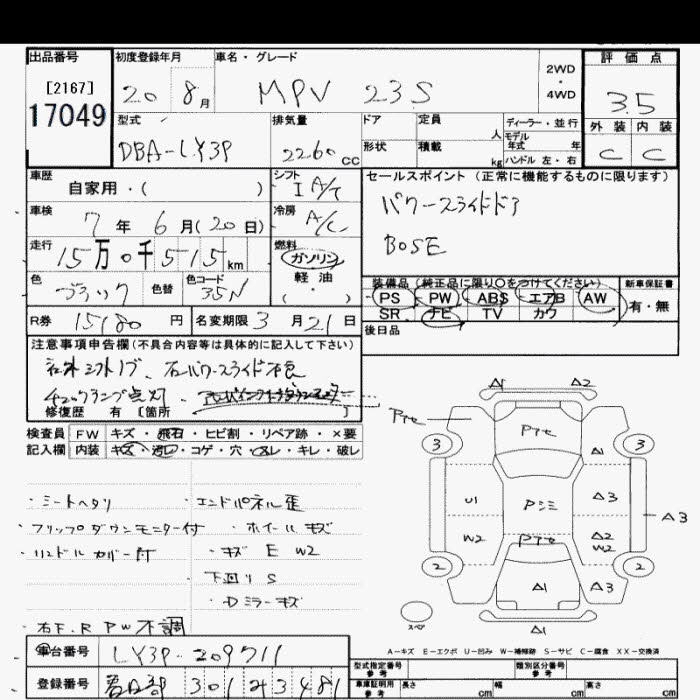 出品番号 初度登録年月 車名・グレード 評価点
[2167] 2WD
17049 20 8月 MPV 23S 4WD 3.5
型式 排気量 ドア 定員 人 ディーラー・並行 外装 内装
DBA-LY3P 2260cc 形状 積載 kg モデル年式 年 ハンドル 左・右 C C
車歴 シフト セールスポイント (正常に機能するものに限ります)
自家用・( ) I A/T パワースライドドア
車検 7年6月(20日) 冷房 A/C BOSE
走行 15万0千515km 燃料 ガソリン
色 ブラック 色替 色コード 35N 軽油 ( ・ )
装備品 (純正品に限り○をつけてください) 新車保証書
PS PW ABS エアB AW 有・無
SR ナビ TV カワ
R券 15180円 名変期限 3月21日 後日品
注意事項申告欄(不具合内容等は具体的に記入して下さい)
社外シフトノブ、右パワースライド不良
チェックランプ点灯、
修復歴 有 [箇所 ]
検査員 FW キズ・飛石・ヒビ割・リペア跡・×要
記入欄 内装 キズ・汚レ・コゲ・穴・スレ・キレ・破レ
・シートヘタリ ・エンドパネル歪
・フリップダウンモニター付 ・ホイールキズ
・ハンドルカバー付 ・キズ E W2
下回り S
・Dミラーキズ
・右F.R PW不調
A1 A2
Pﾃｨｾ Pﾃｨｾ
3 3
A1
U1 Pｼﾐ A3 A3
W2 Pﾃｨｾ A2 W2
2 2
A1 A3
スペア A1
A-キズ E-エクボ U-凹み W-補修跡 S-サビ C-腐食 XX-交換済
車台番号 LY3P-209711
登録番号 春日部 301 そ 3481
型式指定番号 参考 類別区分番号 参考
車庫証明用 参考 長さ cm 幅 cm 高さ cm